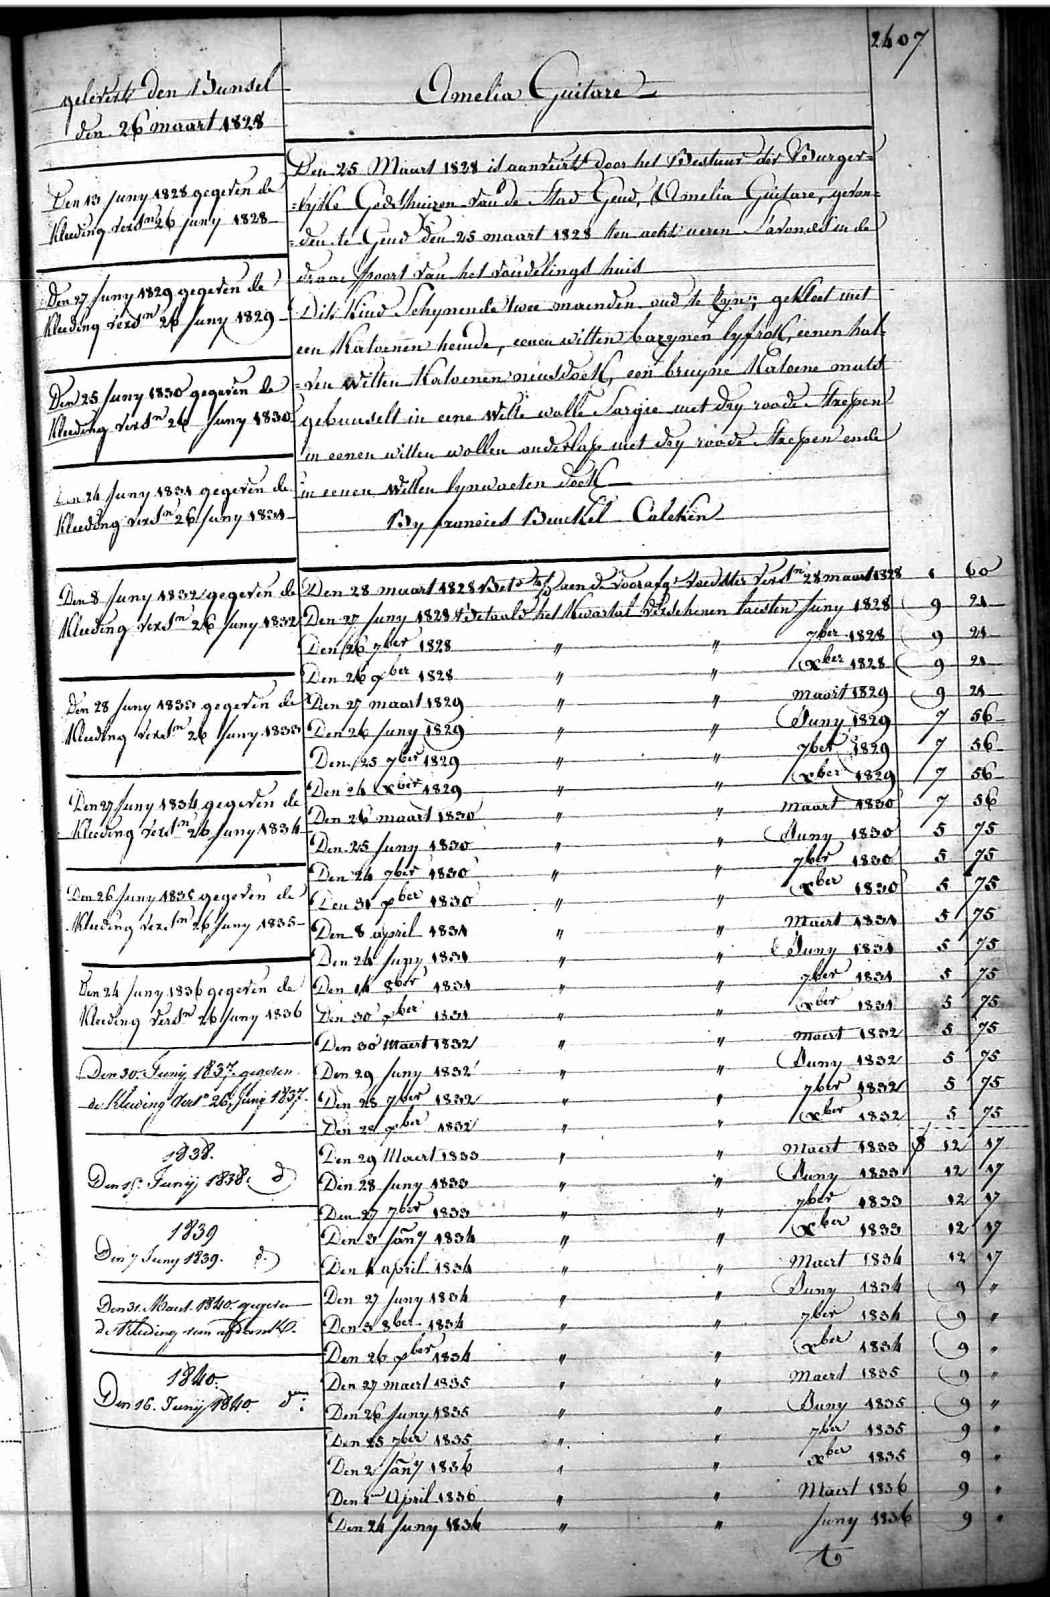 2607
gelevert den Bunsel
den 26 maart 1828
Amelia Guitare
Den 13 Juny 1828 gegeven de
Kleeding verst.n 26 Juny 1828
Den 27 Juny 1829 gegeven de
Kleeding verst.n 26 Juny 1829
Den 25 Juny 1830 gegeven de
Kleeding verst.n 26 Juny 1830
Den 24 Juny 1831 gegeven de
Kleeding verst.n 26 Juny 1831
Den 8 Juny 1832 gegeven de
Kleeding verst.n 26 Juny 1832
Den 28 Juny 1833 gegeven de
Kleeding verst.n 26 Juny 1833
Den 27 Juny 1834 gegeven de
Kleeding verst.n 26 Juny 1834
Den 26 Juny 1835 gegeven de
Kleeding verst.n 26 Juny 1835
Den 24 Juny 1836 gegeven de
Kleeding verst.n 26 Juny 1836
Den 30 Junij 1837 gegeven
de Kleeding verst.n 26 Junij 1837
1838.
Den 15 Junij 1838. d
1839
Den 7 Juny 1839. d.
Den 31 Maert 1840 gegeven
de Kleeding van
1840.
Den 16. Junij 1840. d.
Den 25 Maart 1828 is aanveirt door het Bestuur der Burger=
=lyke Godshuizen van de Stad Gend, Amelia Guitare, gevon=
=den te Gend den 25 maart 1828 ten acht ueren s'avonds in de
draae poort van het vondelings huis
Dit Kind schynende twee maenden oud te zyn, gekleet met
een Katoenen hemde, eenen witten bazynen lyfrok, eenen hal=
=ven witten Katoenen neusdoek, een bruyne Katoene muts
gebunselt in eene witte wolle Sargie met dry roode strepen
in eenen witten wollen onderlap met dry roode strepen ende
in eenen witten lynwaeten doek
By francies Beuckel Calcken
Den 28 maart 1828 Bet. aen de voorafg. voedster verst.n 28 maart 1828 1 60
Den 27 Juny 1828 Betaald het Kwartal verschenen laesten Juny 1828 9 21
Den 26 7ber 1828 " " 7ber 1828 9 21
Den 26 xber 1828 " " xber 1828 9 21
Den 27 maart 1829 " " maart 1829 9 21
Den 26 Juny 1829 " " Juny 1829 7 56
Den 25 7ber 1829 " " 7ber 1829 7 56
Den 24 xber 1829 " " xber 1829 7 56
Den 26 maart 1830 " " maart 1830 7 56
Den 25 Juny 1830 " " Juny 1830 5 75
Den 24 7ber 1830 " " 7ber 1830 5 75
Den 31 xber 1830 " " xber 1830 5 75
Den 8 april 1831 " " Maert 1831 5 75
Den 24 Juny 1831 " " Juny 1831 5 75
Den 14 8ber 1831 " " 7ber 1831 5 75
Den 30 xber 1831 " " xber 1831 5 75
Den 30 Maert 1832 " " maert 1832 5 75
Den 29 Juny 1832 " " Juny 1832 5 75
Den 28 7ber 1832 " " 7ber 1832 5 75
Den 28 xber 1832 " " xber 1832 5 75
Den 29 Maert 1833 " " Maert 1833 12 17
Den 28 Juny 1833 " " Juny 1833 12 17
Den 27 7ber 1833 " " 7ber 1833 12 17
Den 3 Jany 1834 " " xber 1833 12 17
Den 4 april 1834 " " Maert 1834 12 17
Den 27 Juny 1834 " " Juny 1834 9 "
Den 3 8ber 1834 " " 7ber 1834 9 "
Den 26 xber 1834 " " xber 1834 9 "
Den 27 maert 1835 " " Maert 1835 9 "
Den 26 Juny 1835 " " Juny 1835 9 "
Den 25 7ber 1835 " " 7ber 1835 9 "
Den 2 Jany 1836 " " xber 1835 9 "
Den 1en April 1836 " " Maert 1836 9 "
Den 24 Juny 1836 " " Juny 1836 9 "